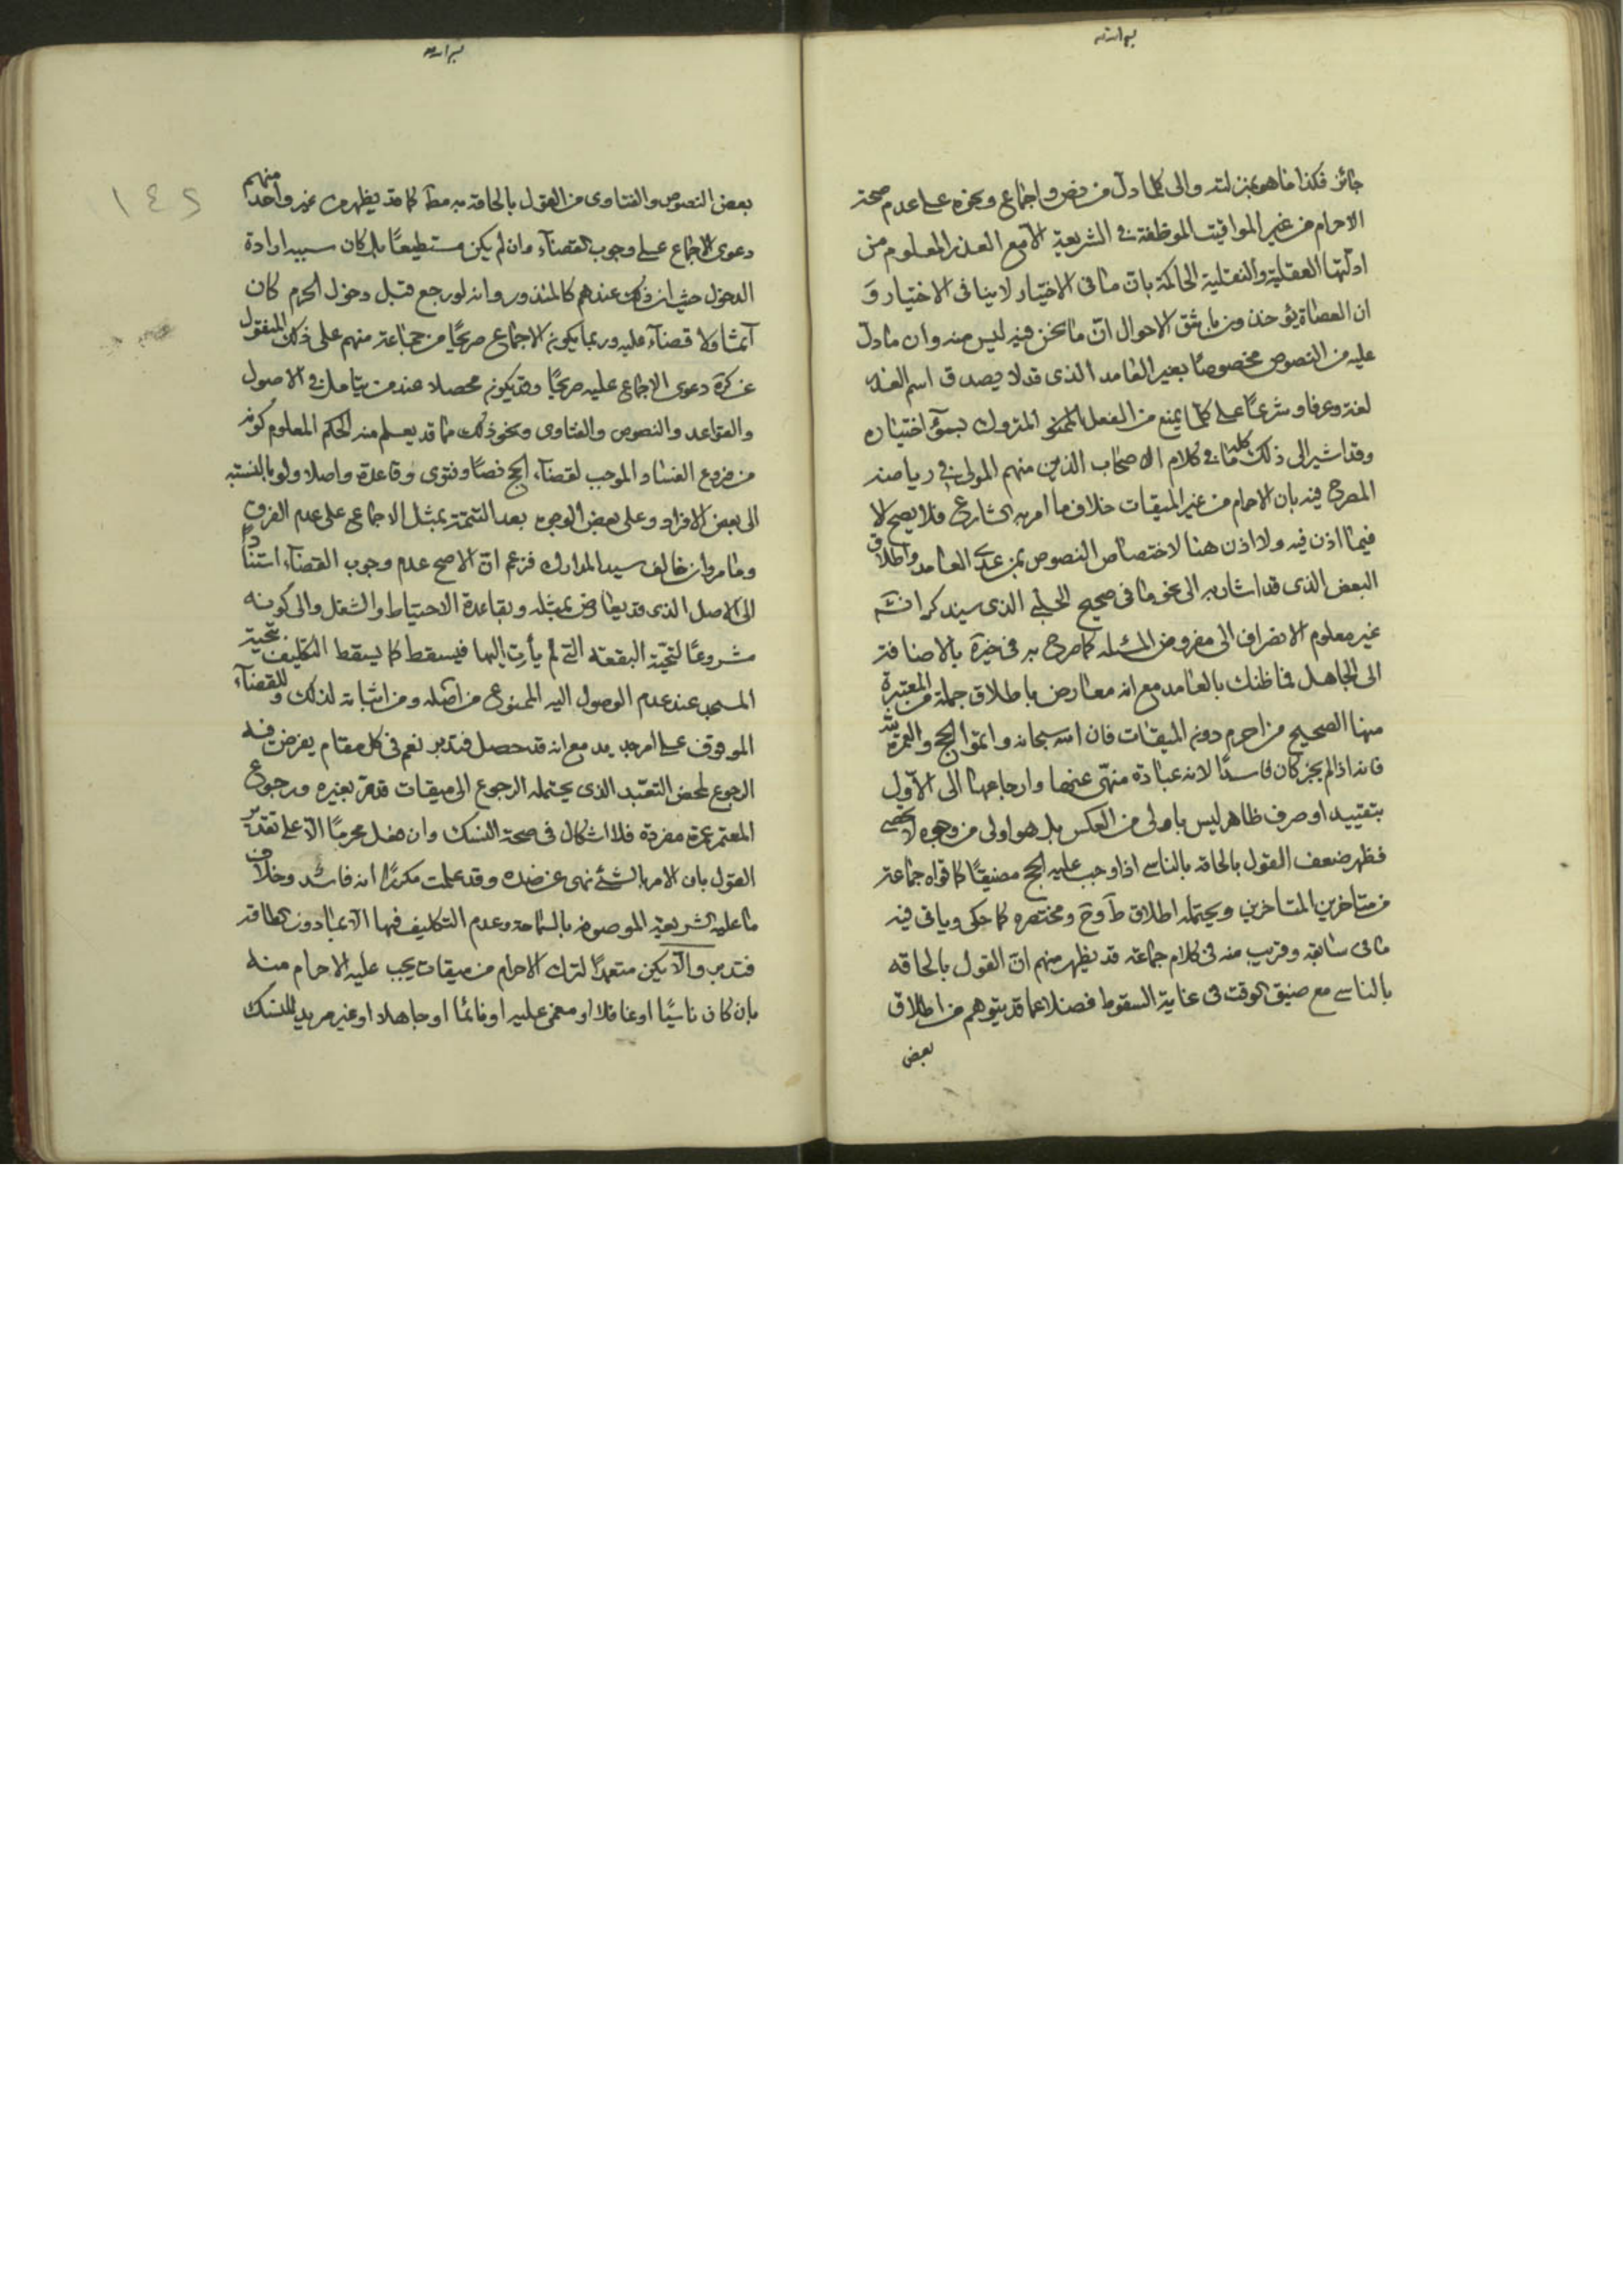 بسم الله
جائز فكذا ما هو بمنزلته والى كلما دل من نص واجماع ونحوه على عدم صحة
الاحرام من غير المواقيت الموظفة فى الشريعة الا مع العذر المعلوم من
ادلتها العقلية والنقلية الحاكمة بان ما فى الاختيار لا ينافى الاختيار و
ان العصاة يؤخذون باشق الاحوال ان ما نحن فيه ليس منه وان ما دل
عليه من النصوص مخصوصا بغير العامد الذى قد لا يصدق اسم العذر
لغة وعرفا وشرعا على كلما يمنع من الفعل المتروك بسوء اختياره
وقد اشير الى ذلك كله فى كلام الاصحاب الذين منهم المولى فى رياضه
المصرح فيه بان الاحرام من غير الميقات خلاف ما امر به الشارع فلا يصح الا
فيما اذن فيه ولا اذن هنا لاختصاص النصوص بمن عدى العامد واطلاق
البعض الذى قد اشار به الى نحو ما فى صحيح الحلبى الذى سيذكر انش
غير معلوم الانصراف الى مفروض المسئله كما صرح به فى خيرة بالاضافة
الى الجاهل فما ظنك بالعامد مع انه معارض باطلاق جملة من المعتبرة
منها الصحيح من احرم دون الميقات فان الله سبحانه واتموا الحج والعمرة لله
فانه اذا لم يجز كان فاسدا لانه عبادة منهى عنها وارجاعها الى الاول
بتقييد او صرف ظاهر ليس باولى من العكس بل هو اولى من وجوه لا تخفى
فظهر ضعف القول بالحاقه بالناسى اذا وجب عليه الحج مضيقا كما قواه جماعة
من متاخرين المتاخرين ويحتمله اطلاق ط وخ ومختصره كما حكى وياتى فيه
ما فى سابقه وقريب منه فى كلام جماعة قد يظهر منهم ان القول بالحاقه
بالناسى مع ضيق الوقت فى غاية السقوط فضلا عما قد يتوهم من اطلاق
بعض
بسم الله
بعض النصوص والفتاوى من القول بالحاقه به مط كما قد يظهر من غير واحد منهم
دعوى الاجماع على وجوب القضاء وان لم يكن مستطيعا بل كان سببه ارادة
الدخول حيث ان ذلك عندهم كالمنذور وانه لو رجع قبل دخول الحرم كان
آثما ولا قضاء عليه وربما يكون الاجماع صريحا من جماعة منهم على ذلك المنقول
عن كرة دعوى الاجماع عليه صريحا وقد يكون محصلا عند من يتامل فى الاصول
والقواعد والنصوص والفتاوى ونحو ذلك مما قد يعلم منه الحكم المعلوم كونه
من فروع الفساد الموجب لقضاء الحج نصا وفتوى وقاعدة واصلا ولو بالنسبة
الى بعض الافراد وعلى بعض الوجوه بعد التتمة بمثل الاجماع على عدم الفرق
وما مر وان خالف سيد المدارك فزعم ان الاصح عدم وجوب القضاء استنادا
الى الاصل الذى قد يعارض بمثله وبقاعدة الاحتياط والشغل والى كونه
مشروعا لتحية البقعة التى لم يأت اليها فيسقط كما يسقط التكليف بتحية
المسجد عند عدم الوصول اليه الممنوع من اصله ومن اثباته لذلك وللقضاء
الموقوف على امر جديد مع انه قد حصل فتدبر نعم فى كل مقام يفرض فيه
الرجوع لمحض التعبد الذى يحتمله الرجوع الى ميقات قد مر بغيره ورجوع
المعتمر عمرة مفردة فلا اشكال فى صحة النسك وان فعل محرما الا على تقدير
القول بان الامر بالشئ نهى عن ضده وقد علمت مكررا انه فاسد وخلاف
ما عليه الشريعة الموصوفه بالسماحة وعدم التكليف فيها الا بما دون الطاقة
فتدبر والا يكن متعمدا لترك الاحرام من ميقات يجب عليه الاحرام منه
بان كان ناسيا او غافلا او مغمى عليه او نائما او جاهلا او غير مريد للنسك
١٤٢